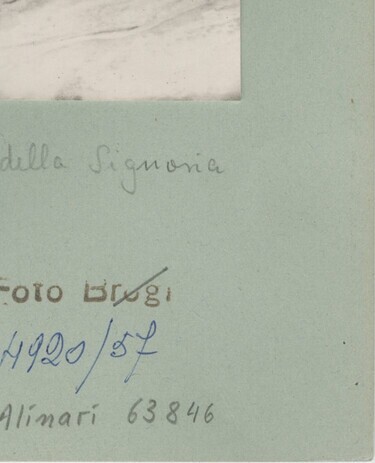 della Signoria
Foto Brogi
4920/57
Alinari 63846